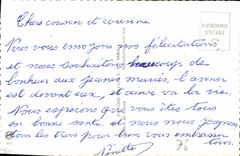 Chers cousin et cousine
Nous vous envoyons nos félicitations
et nous souhaitons beaucoup de
bonheur aux jeunes mariés, l'avenir
est devant eux, et ainsi va la vie.
Nous espérons que vous êtes tous
en bonne santé, et nous nous joignons
tous les trois pour bien vous embrasser
tous.
PHOTOGRAPHIE
VÉRITABLE
76